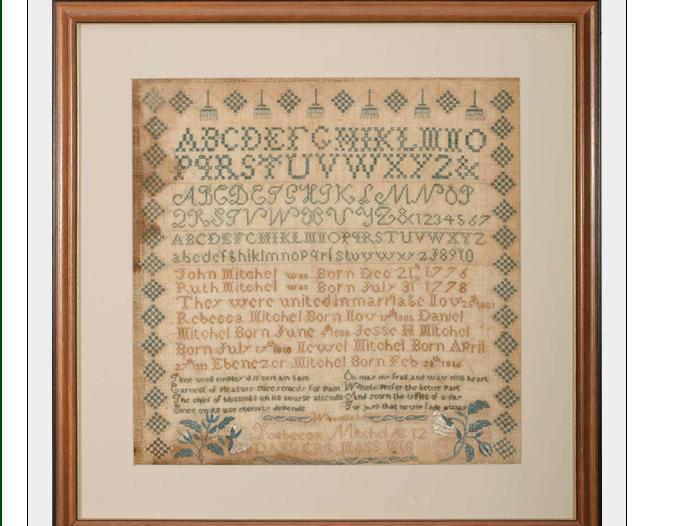 ABCDEFGHIKLMNO
PQRSTUVWXYZ&
ABCDEFGHIKLMNOP
QRSTVWXUYZ&1234567
ABCDEFGHIKLMNOPQRSTUVWXYZ
abcdefghiklmnopqrſstuvwxyz8910
John Mitchel was Born Dec 21st 1776
Ruth Mitchel was Born July 31 1778
They were united in marriage Nov 25th 1801
Rebecca Mitchel Born Nov 1802 Daniel
Mitchel Born June 4th Jesse H Mitchel
Born July 17th 1810 Newel Mitchel Born April
27th 1813 Ebenezer Mitchel Born Feb 28th 1816
Time well employ'd is certain gain
Earnest of pleasure sure remedy for pain
The chief of blessings on its course attends
Since on its use eternity depends
Oh may my frail and wavering heart
Wisely prefer the better part
And scorn the trifles of a day
For joys that never fade away
Rebecca Mitchel Æ 12
MASS